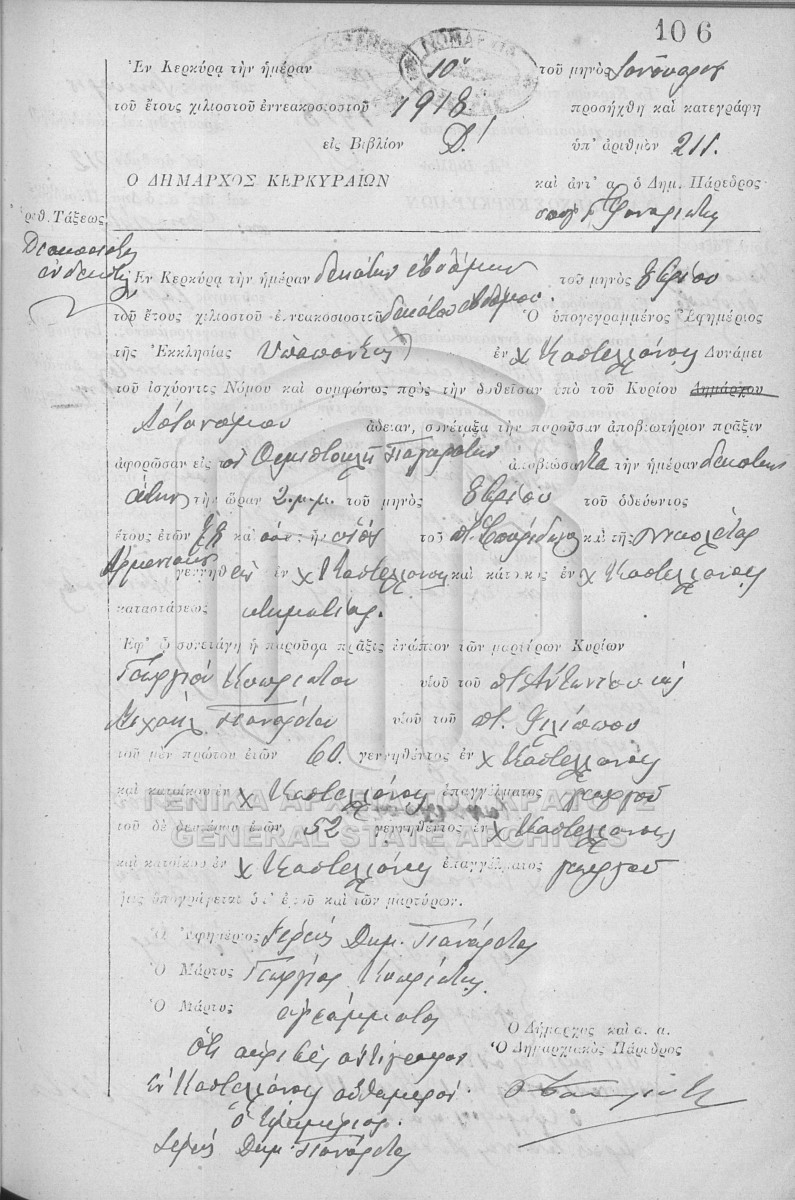 106
Ἐν Κερκύρᾳ τὴν ἡμέραν 10ην τοῦ μηνὸς Ἰανουαρίου
τοῦ ἔτους χιλιοστοῦ ἐννεακοσιοστοῦ 1918 προσήχθη καὶ κατεγράφη
εἰς Βιβλίον Δ! ὑπ' ἀριθμὸν 211.
Ο ΔΗΜΑΡΧΟΣ ΚΕΡΚΥΡΑΙΩΝ καὶ ἀντ' α. ὁ Δημ. Πάρεδρος
Ἀριθ. Τάξεως
Ἐν Κερκύρᾳ τὴν ἡμέραν δεκάτην ἑβδόμην τοῦ μηνὸς 8βρίου
τοῦ ἔτους χιλιοστοῦ ἐννεακοσιοστοῦ δεκάτου ἑβδόμου. Ὁ ὑπογεγραμμένος Ἐφημέριος
τῆς Ἐκκλησίας Ὑπαπαντῆς ἐν χ Καστελλάνοις Δυνάμει
τοῦ ἰσχύοντος Νόμου καὶ συμφώνως πρὸς τὴν δοθεῖσαν ὑπὸ τοῦ Κυρίου Δημάρχου
Ἀστυνόμου ἄδειαν, συνέταξα τὴν παροῦσαν ἀποβιωτήριον πρᾶξιν
ἀφορῶσαν εἰς τὸν ἀποβιώσαντα τὴν ἡμέραν δεκάτην
τὴν ὥραν 2 μ.μ. τοῦ μηνὸς 8βρίου τοῦ ὁδεύοντος
ἔτους ἐτῶν υἱὸς τοῦ π. Σπυρίδωνος καὶ τῆς Νικολέτας
γεννηθεὶς ἐν χ Καστελλάνοις καὶ κάτοικος ἐν χ Καστελλάνοις
καταστάσεως κτηματίας.
Ἐφ' ᾧ συνετάγη ἡ παροῦσα πρᾶξις ἐνώπιον τῶν μαρτύρων Κυρίων
Γεωργίου Κυπριώτου υἱοῦ τοῦ π. Ἀντωνίου καὶ
Μιχαὴλ Πανάρετου υἱοῦ τοῦ π. Φιλίππου
τοῦ μὲν πρώτου ἐτῶν 60. γεννηθέντος ἐν χ Καστελλάνοις
καὶ κατοίκου ἐν χ Καστελλάνοις ἐπαγγέλματος γεωργοῦ
ΓΕΝΙΚΑ ΑΡΧΕΙΑ ΤΟΥ ΚΡΑΤΟΥΣ
τοῦ δὲ δευτέρου ἐτῶν 52 γεννηθέντος ἐν χ Καστελλάνοις
GENERAL STATE ARCHIVES
καὶ κατοίκου ἐν χ Καστελλάνοις ἐπαγγέλματος γεωργοῦ
ὑπογράφεται ὑπ' ἐμοῦ καὶ τῶν μαρτύρων.
Ὁ Ἐφημέριος Ἱερεὺς Δημ. Πανάρετος
Ὁ Μάρτυς Γεώργιος Κυπριώτης
Ὁ Μάρτυς ἀγράμματος
Ὁ Δήμαρχος καὶ α. α.
Ὁ Δημαρχιακὸς Πάρεδρος
Ὅτι ἀκριβὲς ἀντίγραφον
Ἐν Καστελλάνοις αὐθημερόν.
Ὁ Ἐφημέριος.
Ἱερεὺς Δημ. Πανάρετος